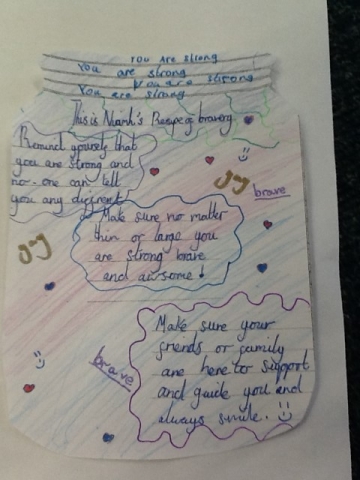 You are strong
You are strong
You are strong
You are strong
This is Niamh's Recipe of bravery
Remind yourself that
you are strong and
no-one can tell
you any different!
joy
brave
Make sure no matter
thin or large you
are strong brave
and awsome!
joy
Make sure your
friends or family
are here to support
and guide you and
always smile.
brave